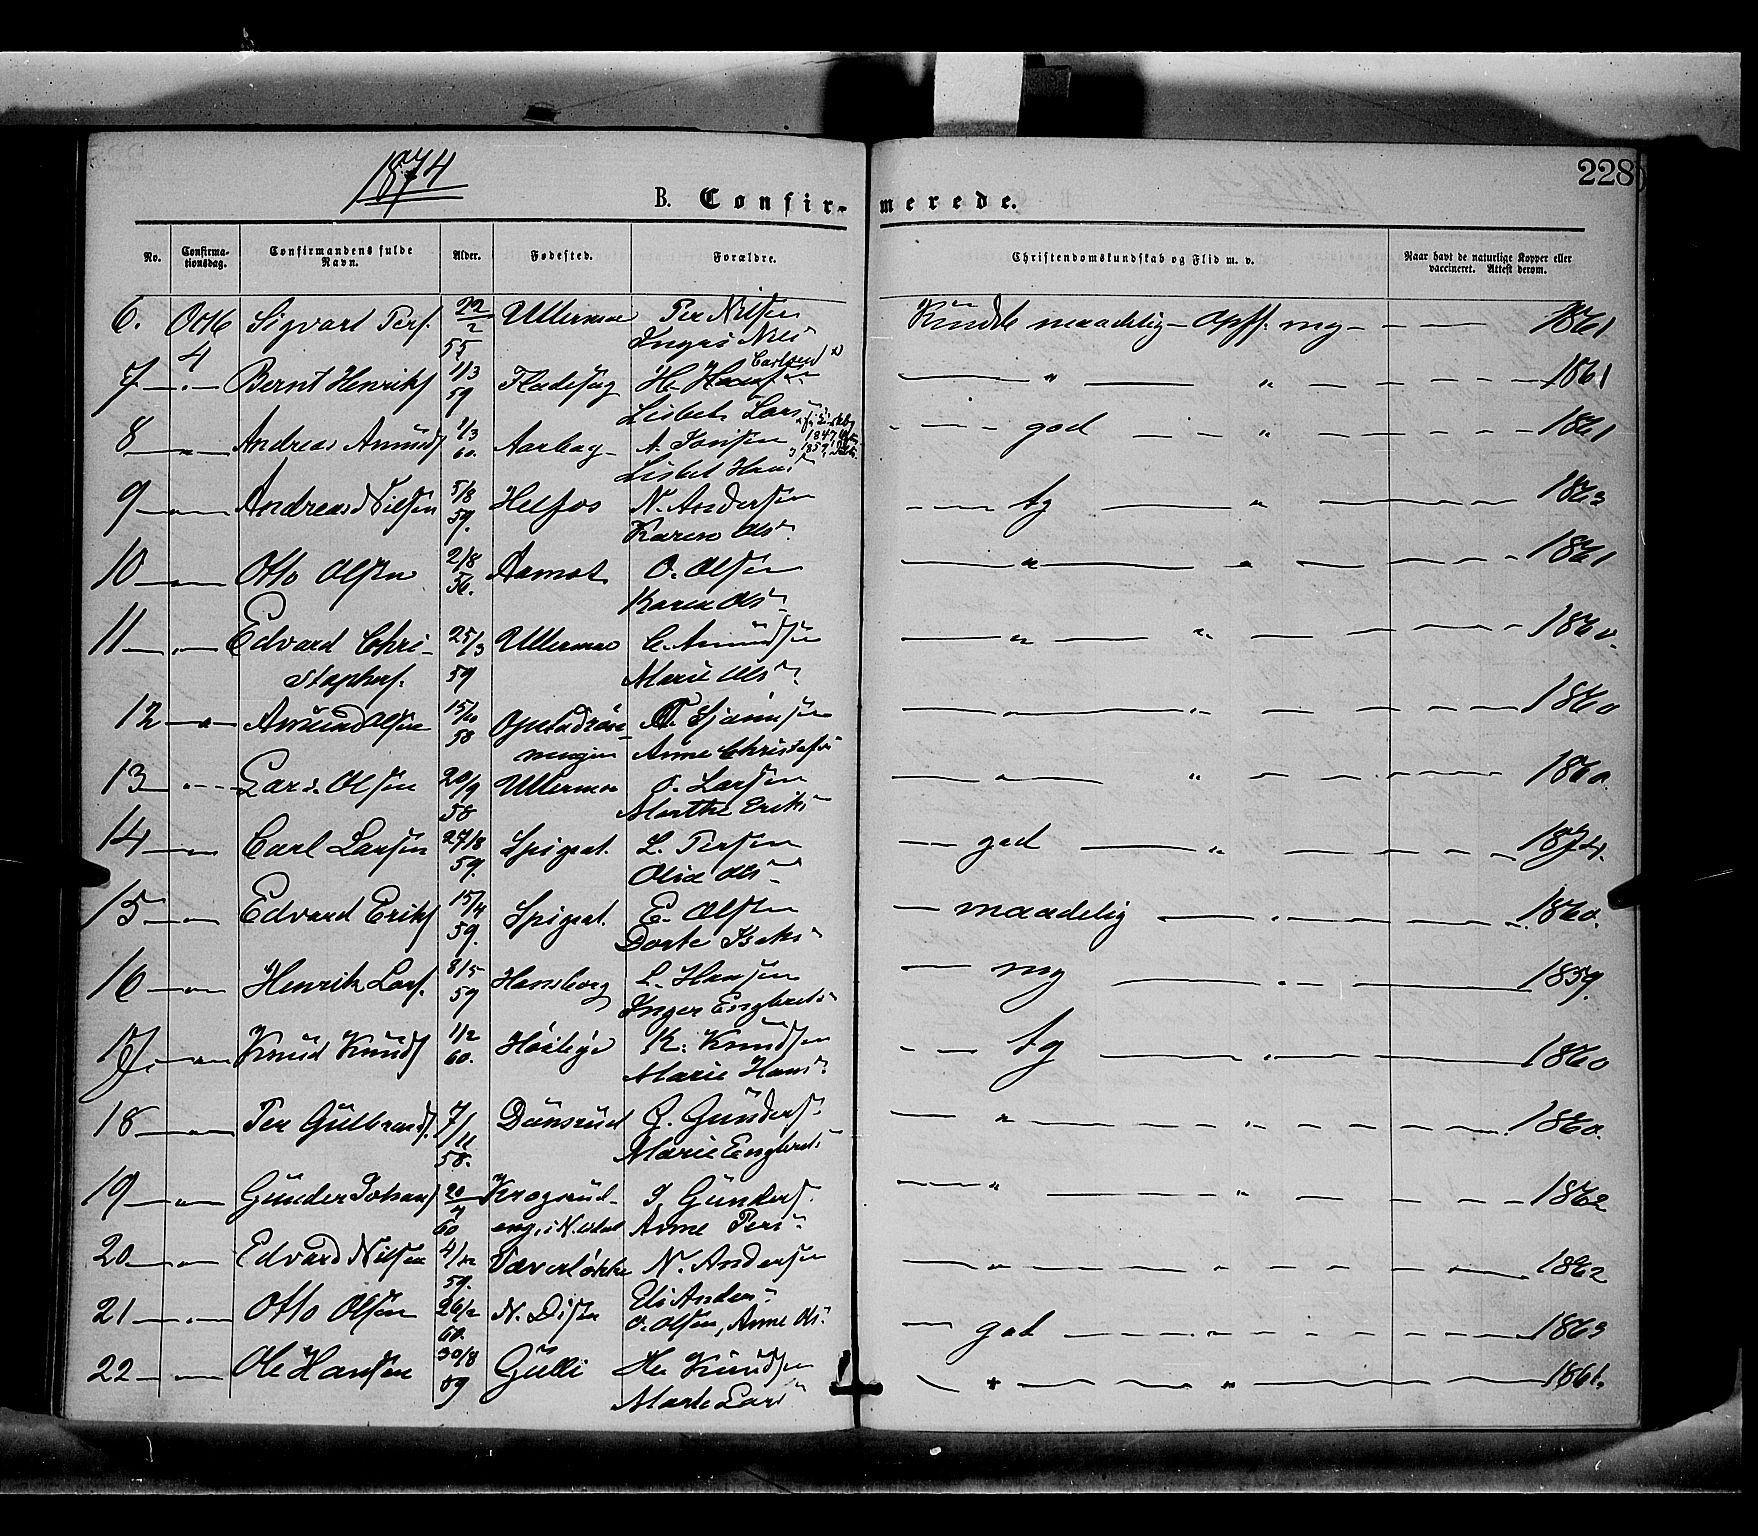 1874
228
B. Confir- merede.
No. Confirma-tionsdag. Confirmandens fulde Navn. Alder. Fødested. Forældre. Christendomskundskab og Flid m. v. Naar havt de naturlige Kopper eller vaccineret. Attest derom.
6. Octb 4 Sigvart Pers. 22/2 55 Ullermoe Per Nilsen Kundsk maadelig - Opf. mg - 1861
Inger Nils
7 Bernt Henriks 11/3 59 Fladesag H. Carlsen " " 1861
Lisbet Lars
8 Andreas Amunds 1/3 60. Aarbog A. god " 1861
Lisbet Hans
9 Andreas Nilsen 5/8 59. Helfos N. Andersen tg " 1863
Karen Ols
10 Otto Olsen 2/8 Aamot O. Olsen " " 1861
Karen Ols
11 Edvard Chri- 25/3 59 Ullermoe C. Amundsen " " 1860.
stophers. Marie Ols
12 Amund Olsen 15/10 58 " " 1860
Anne Christofs
13 Lars Olsen 20/9 58 Ullermoe O. Larsen " " 1860.
Marthe Eriks
14 Carl Larsen 27/8 59. Spigset. L. Persen god " 1874.
Olia Ols
15 Edvard Eriks 15/4 59. Spigset. E. Olsen maadelig 1860.
Dorte Isaks
16 Henrik Lars. 8/5 59 Hansborg L. Hansen mg 1859.
Inger Engbrets
17. Knud Knuds 1/2 60. K. Knudsen tg 1860
Marie Hans
18 Per Gulbrands. 7/11 58. Dønsrud G. Gunders. " 1860.
Marie Engbrets
19 Gunder Johans 20 60 Krogsrud- J. Gunders. " " 1862
eng, i N. Anne Pers
20 Edvard Nilsen 4/12 59. Væverløkke N. Andersen " 1862
Eli Anders
21 Otto Olsen 26/2 60. N. Disen O. Olsen, Anne Ols. god 1863
22 Ole Hansen 30/8 59 Gulli H. Knudsen " " 1861.
Marte Lars